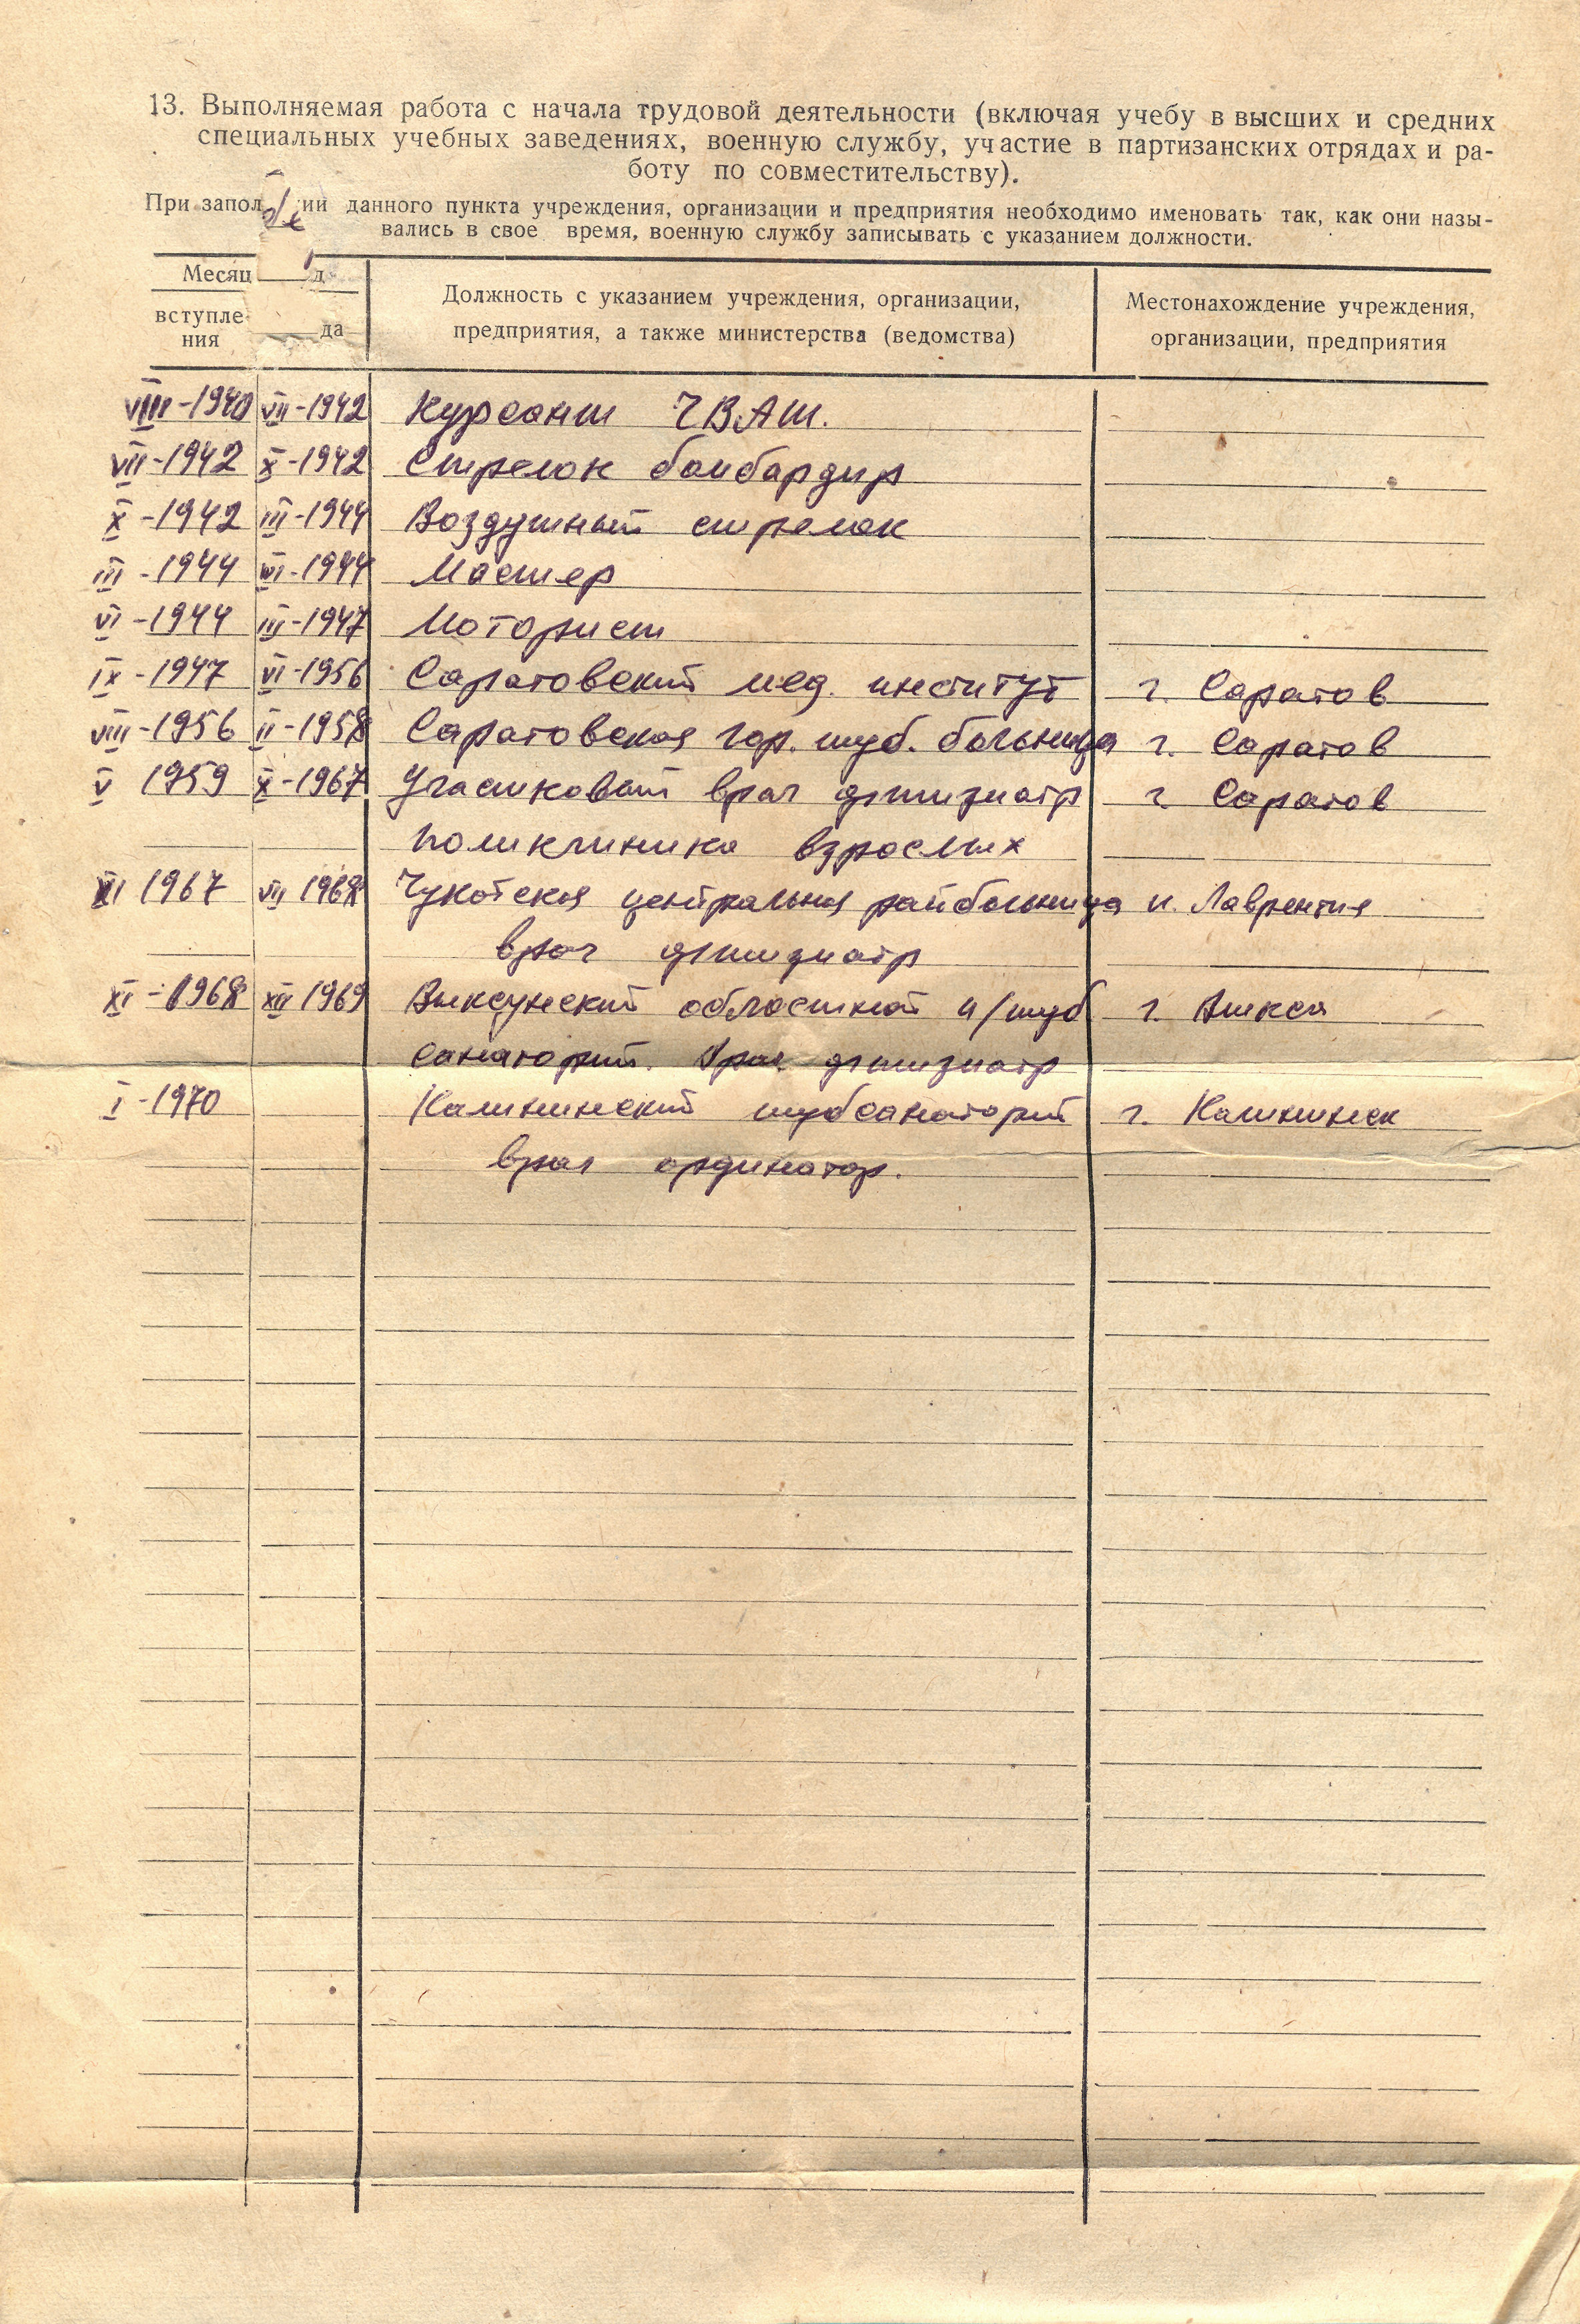 13. Выполняемая работа с начала трудовой деятельности (включая учебу в высших и средних
специальных учебных заведениях, военную службу, участие в партизанских отрядах и ра-
боту по совместительству).
При запол ии данного пункта учреждения, организации и предприятия необходимо именовать так, как они назы-
вались в свое время, военную службу записывать с указанием должности.
Месяц д
вступле-
ния
да
Должность с указанием учреждения, организации,
предприятия, а также министерства (ведомства)
Местонахождение учреждения,
организации, предприятия
VIII-1940 VII-1942 Курсант ЧВАШ.
VII-1942 X-1942 Стрелок бомбардир
X-1942 III-1944 Воздушный стрелок
III-1944 VI-1944 Мастер
VI-1944 III-1947 Моторист
IX-1947 VI-1956 Саратовский мед. институт г. Саратов
VIII-1956 II-1958 Саратовская гор. туб. больница г. Саратов
V 1959 X-1967 Участковый врач фтизиатр г. Саратов
поликлиника взрослых
XI 1967 VII 1968 Чукотская центральная райбольница п. Лаврентия
врач фтизиатр
XI-1968 XII 1969 Выксунский областной п/туб г. Выкса
санаторий. Врач фтизиатр
I-1970 Калининский тубсанаторий г. Калининск
врач ординатор.